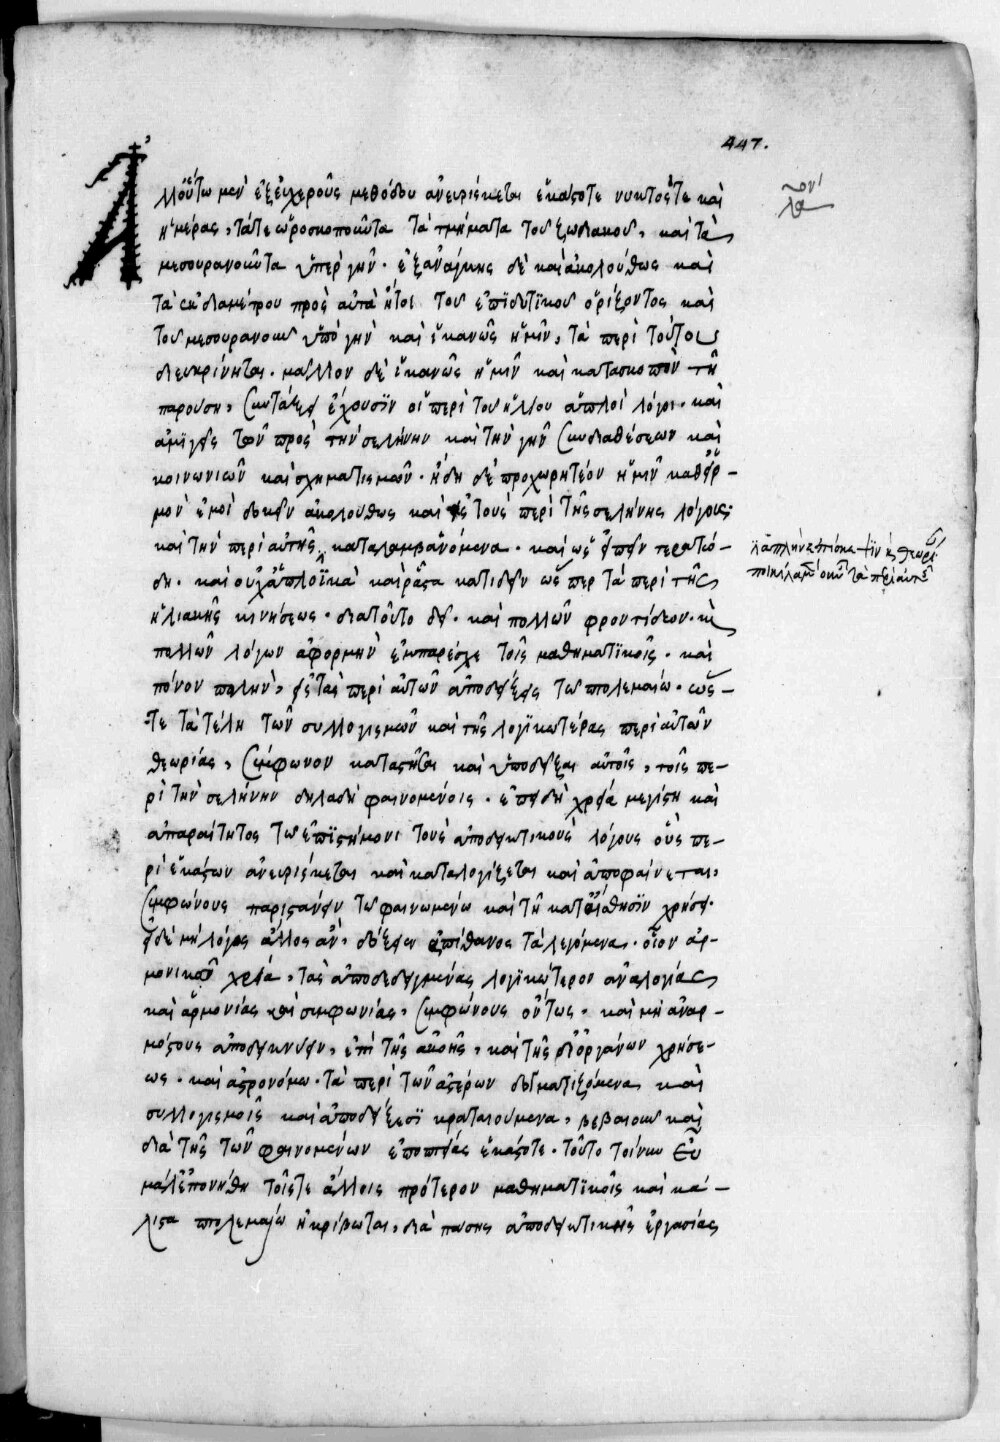 447.
Ἀλλ' οὕτω μὲν ἐξ εὐχεροῦς μεθόδου ἀνευρίσκεται ἑκάστοτε νυκτὸς τε καὶ
ἡμέρας, τά τε ὡροσκοποῦντα τὰ τμήματα τοῦ ζωδιακοῦ, καὶ τὰ
μεσουρανοῦντα ὑπὲρ γῆν· ἐξανάγκης δὲ καὶ ἀκολούθως καὶ
τὰ ἐκ διαμέτρου πρὸς αὐτὰ ἤτοι τοῦ ἐπιδυτικοῦ ὁρίζοντος καὶ
τοῦ μεσουρανοῦ ὑπὸ γῆν καὶ ἱκανῶς ἡμῖν, τὰ περὶ τούτου
διευκρίνηται· μᾶλλον δὲ ἱκανῶς ἡμῖν καὶ κατασκοπὸν τῇ
παρούσῃ, συντάξει ἔχουσιν οἱ περὶ τοῦ ἡλίου ἁπλοῖ λόγοι· καὶ
ἀμιγεῖς τῶν πρὸς τὴν σελήνην καὶ τὴν γῆν συνδιαθέσεων καὶ
κοινωνιῶν καὶ σχηματισμῶν· ἤδη δὲ προχωρητέον ἡμῖν καθ' εἱρ-
μὸν ἐμοὶ δοκεῖν ἀκολούθως καὶ εἰς τοὺς περὶ τῆς σελήνης λόγους·
καὶ τὴν περὶ αὐτῆς καταλαμβανόμενα· καὶ ὡς εἰπεῖν τερατώ-
δη· καὶ οὐχ ἁπλοϊκὰ καὶ ῥᾷστα κατιδεῖν ὥσπερ τὰ περὶ τῆς
ἡλιακῆς κινήσεως· διατοῦτο δὴ· καὶ πολλῶν φροντίδων· καὶ
πολλῶν λόγων ἀφορμὴν ἐμπαρέσχε τοῖς μαθηματικοῖς· καὶ
πόνον πολὺν, εἰς τὰς περὶ αὐτῶν ἀποδείξεις τῷ πτολεμαίῳ· ὥς-
τε τὰ τέλη τῶν συλλογισμῶν καὶ τῆς λογικωτέρας περὶ αὐτῶν
θεωρίας, σύμφωνον καταστῆσαι καὶ ὑποδεῖξαι αὐτοῖς, τοῖς πε-
ρὶ τὴν σελήνην δηλαδὴ φαινομένοις· ἐπειδὴ χρεία μεγίστη καὶ
ἀπαραίτητος τῷ ἐπιστήμονι τοὺς ἀποδεικτικοὺς λόγους οὓς πε-
ρὶ ἑκάστων ἀνευρίσκεται καὶ καταλογίζεται καὶ ἀποφαίνεται,
συμφώνους παριστάνειν τῷ φαινωμένῳ καὶ τῇ κατ' αἴσθησιν χρήσει·
εἰ δὲ μὴ λόγος ἄλλος ἂν δόξειεν ἀπίθανος τὰ λεγόμενα· οἷον ἁρ-
μονικῶν χρεία, τὰς ἀποδεδειγμένας λογικώτερον ἀναλογίας
καὶ ἁρμονίας καὶ συμφωνίας, συμφώνους οὕτως, καὶ μὴ ἀναρ-
μόστους ἀποδεικνύειν, ἐπὶ τῆς ἀκοῆς, καὶ τῆς δι' ὀργάνων χρήσε-
ως· καὶ ἀστρονόμῳ· τὰ περὶ τῶν ἀστέρων δογματιζόμενα καὶ
συλλογισμοῖς καὶ ἀποδείξεσι κραταιούμενα, βεβαιοῦν καὶ
διὰ τῆς τῶν φαινομένων ἐποπτείας ἑκάστοτε· τοῦτο τοίνυν εὖ
μάλ' ἐπονήθη τοῖς τε ἄλλοις πρότερον μαθηματικοῖς καὶ κά-
λιστα πτολεμαίῳ ἠκρίβωται, διὰ πάσης ἀποδεικτικῆς ἐργασίας